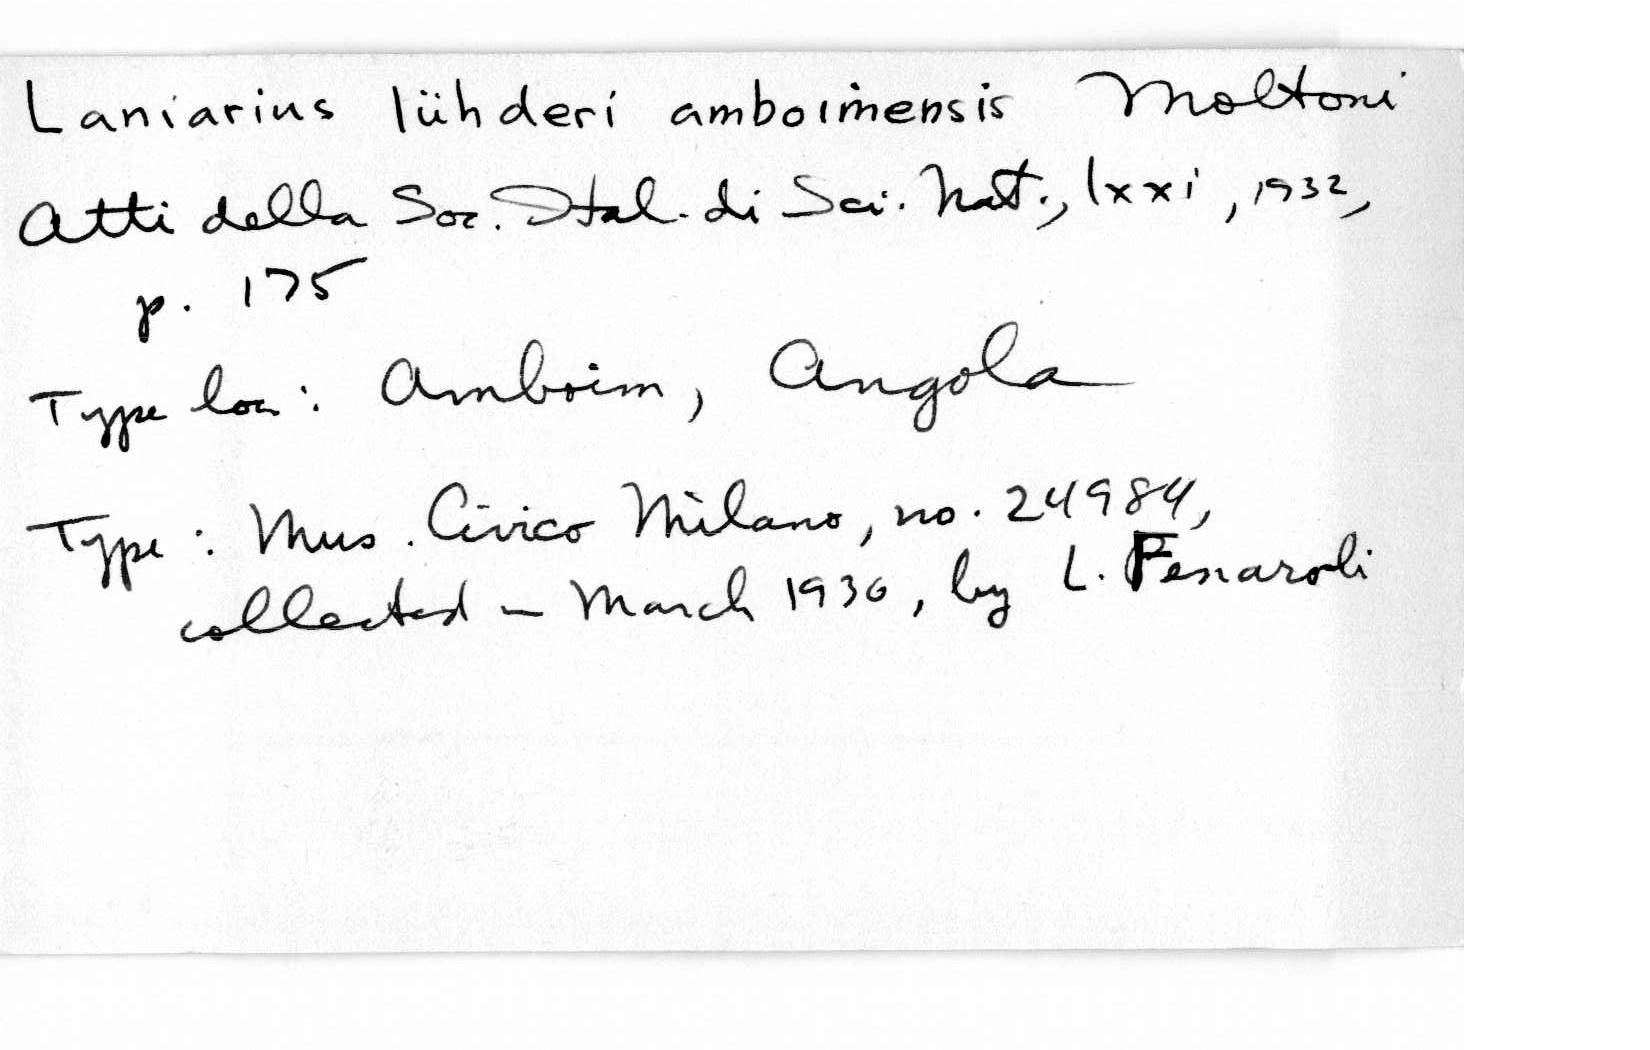 Laniarius lühderi amboimensis Moltoni
Atti della Soc. Ital. di Sci. Nat., lxxi, 1932,
p. 175
Type loc: Amboim, Angola
Type: Mus. Civico Milano, no. 24984,
collected – March 1930, by L. Fenaroli